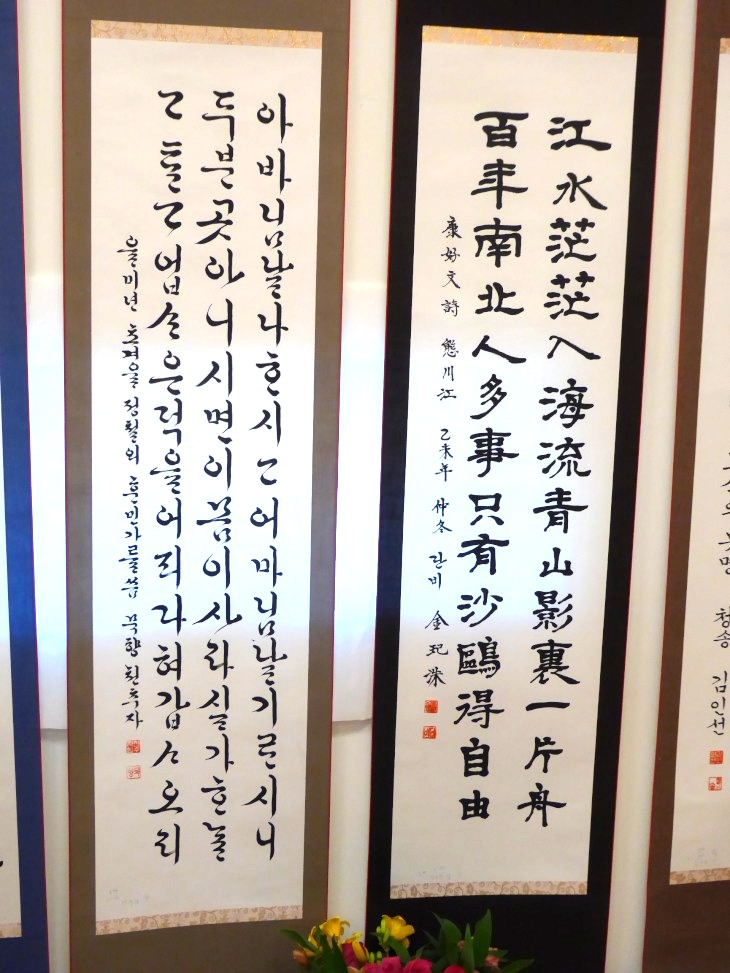 청송 김인선
江水茫茫入海流青山影裏一片舟
百年南北人多事只有沙鷗得自由
康好文詩 態川江 乙未年 仲冬 란비 金
아바님날나ᄒᆞ시고어마님날기르시니
두분곳아니시면이몸이사라실가ᄒᆞ늘
ᄀᆞᄐᆞᆫᄀᆞ업ᄉᆞᆫ은덕을어ᄃᆡ다혀갑ᄉᆞ오리
을미년 초겨울 정철의 훈민가를 씀 묵향